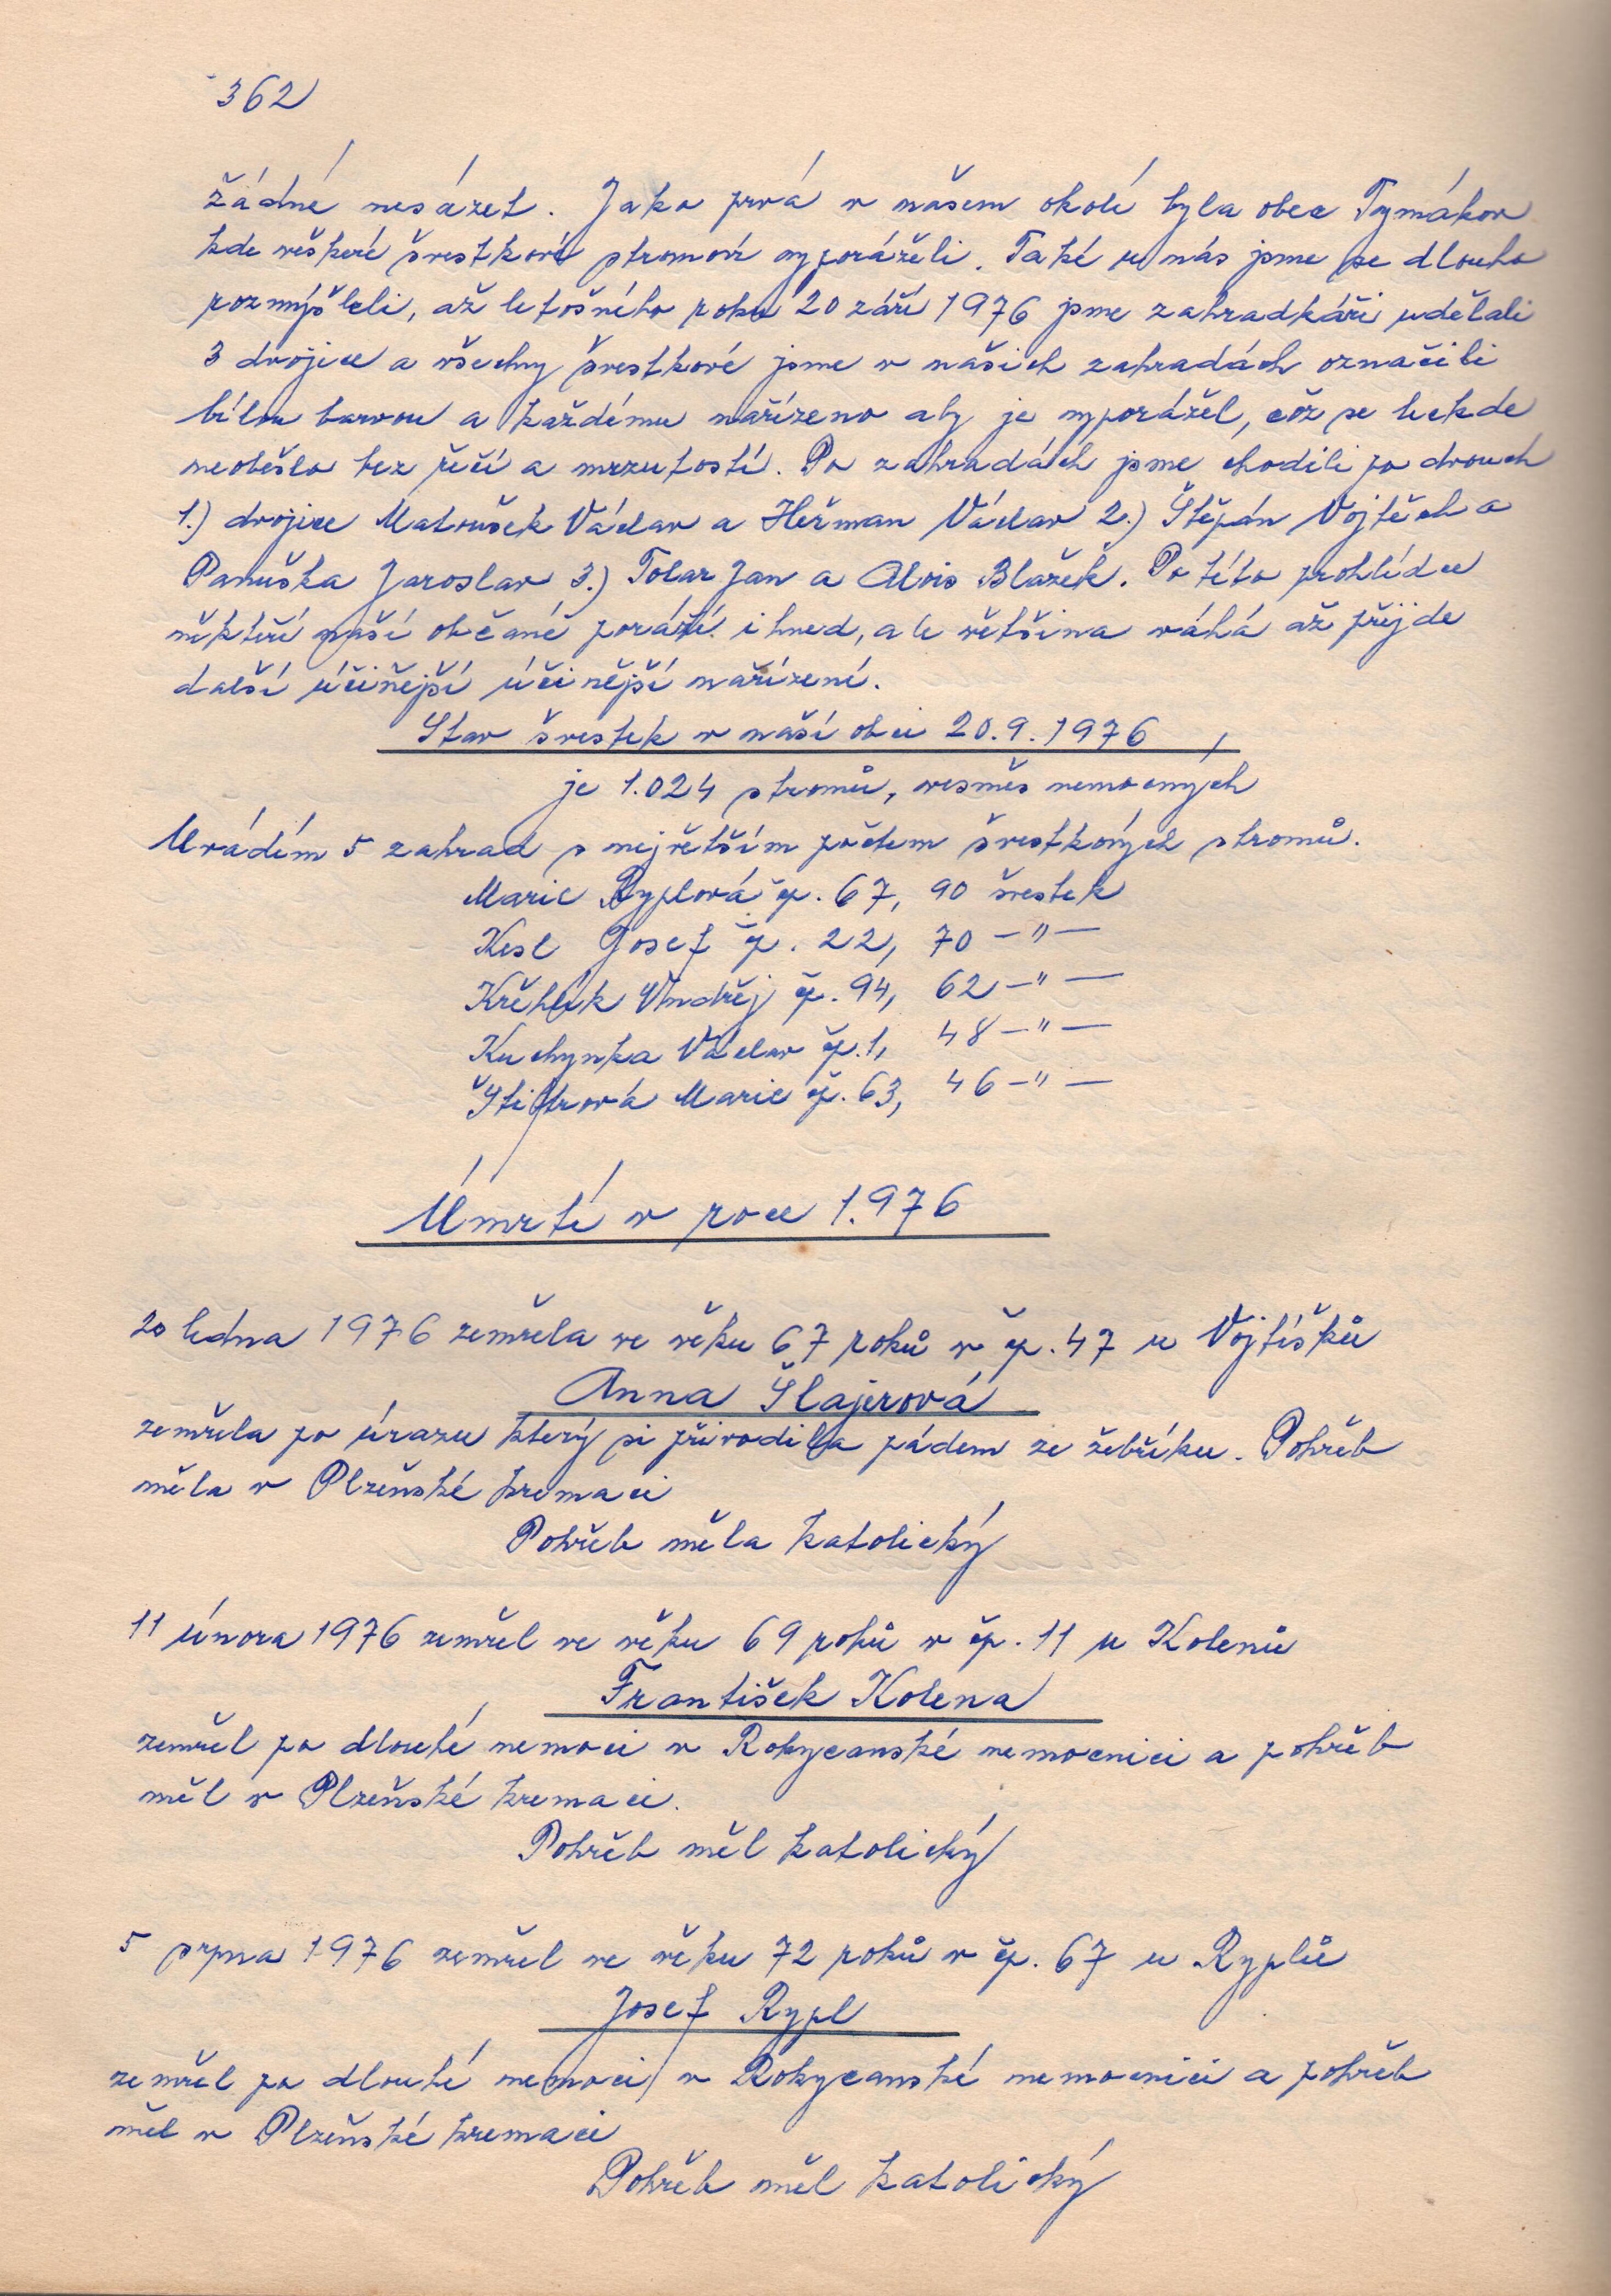 362
žádné nesázet. Jako prvá v našem okolí byla obec Tymákov
kde veškeré švestkové stromoví vyporáželi. Také u nás jsme se dlouho
rozmýšleli, až letošního roku 20 září 1976 jsme zahradkáři udělali
3 dvojice a všechny švestkové jsme v našich zahradách označili
bílou barvou a každému nařízeno aby je vyporážel, což se leckde
neobešlo bez řečí a mrzutostí. Po zahradách jsme chodili po dvouch
1.) dvojice Matoušek Václav a Heřman Václav 2.) Štěpán Vojtěch a
Panuška Jaroslav 3.) Tolar Jan a Alois Blažek. Po této prohlídce
někteří naší občané poráží ihned, ale většina váhá až přijde
další účiňejší účinější nařízení.
Stav švestek v naší obci 20.9.1976
je 1.024 stromů, vesměs nemocných
Uvádím 5 zahrad s největším počtem švestkových stromů.
Marie Ryplová čp. 67, 90 švestek
Kesl Josef čp. 22, 70 –"–
Křehlík Ondřej čp. 94, 62 –"–
Kuchynka Václav čp. 1, 48 –"–
Marie čp. 63, 46 –"–
Úmrtí v roce 1.976
20 ledna 1976 zemřela ve věku 67 roků v čp. 47 u Vojtíšků
Anna Šlajerová
zemřela po úrazu který si přivodila pádem ze žebříku. Pohřeb
měla v Plzeňské kremaci
Pohřeb měla katolický
11 února 1976 zemřel ve věku 69 roků v čp. 11 u Kolenů
František Kolena
zemřel po dlouhé nemoci v Rokycanské nemocnici a pohřeb
měl v Plzeňské kremaci.
Pohřeb měl katolický
5 srpna 1976 zemřel ve věku 72 roků v čp. 67 u Ryplů
Josef Rypl
zemřel po dlouhé nemoci v Rokycanské nemocnici a pohřeb
měl v Plzeňské kremaci
Pohřeb měl katolický